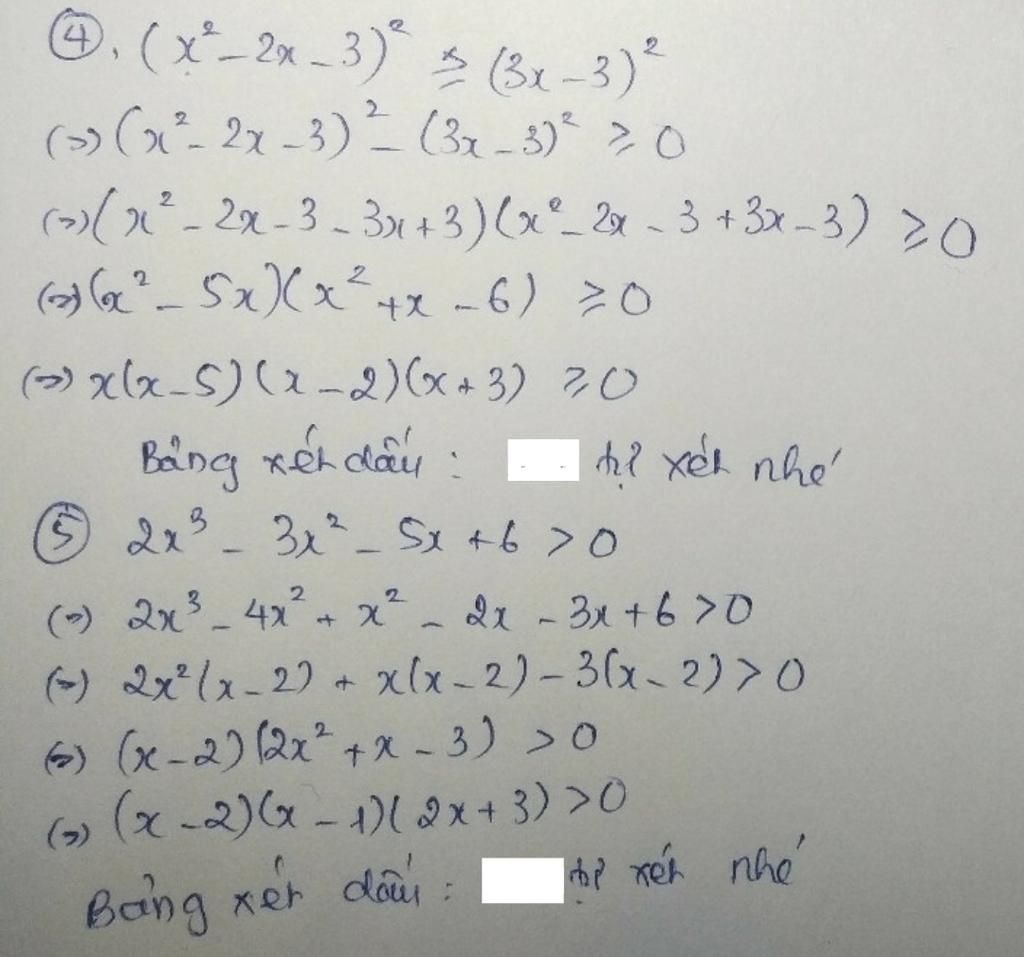 ④. (x² - 2x - 3)² ≥ (3x - 3)²
(=>) (x² - 2x - 3)² - (3x - 3)² ≥ 0
(=>) (x² - 2x - 3 - 3x + 3)(x² - 2x - 3 + 3x - 3) ≥ 0
(=>) (x² - 5x)(x² + x - 6) ≥ 0
(=>) x(x - 5)(x - 2)(x + 3) ≥ 0
Bảng xét dấu : tự xét nhé
⑤ 2x³ - 3x² - 5x + 6 > 0
(=>) 2x³ - 4x² + x² - 2x - 3x + 6 > 0
(=>) 2x²(x - 2) + x(x - 2) - 3(x - 2) > 0
(=>) (x - 2)(2x² + x - 3) > 0
(=>) (x - 2)(x - 1)(2x + 3) > 0
Bảng xét dấu : tự xét nhé